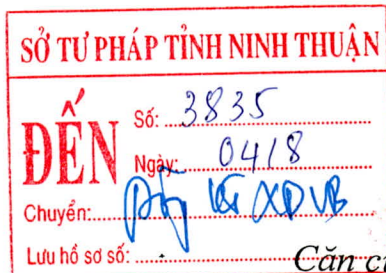 SỞ TƯ PHÁP TỈNH NINH THUẬN
ĐẾN
Số: 3835
Ngày: 04/8
Chuyển: XDVB
Lưu hồ sơ số:
Căn c